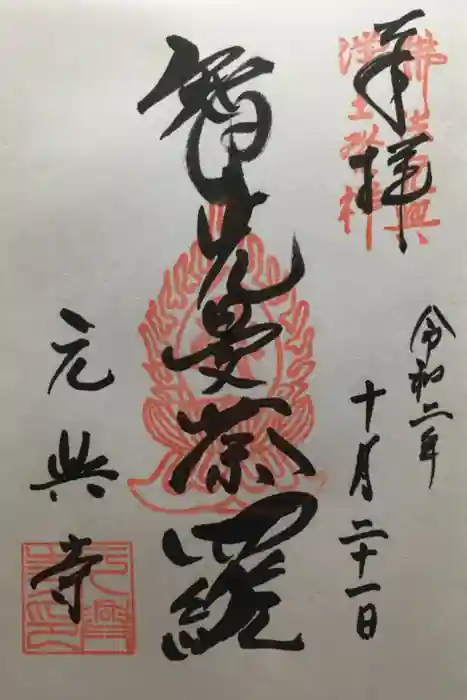 奉拝
令和二年
十月二十一日
智光曼荼羅
元興寺